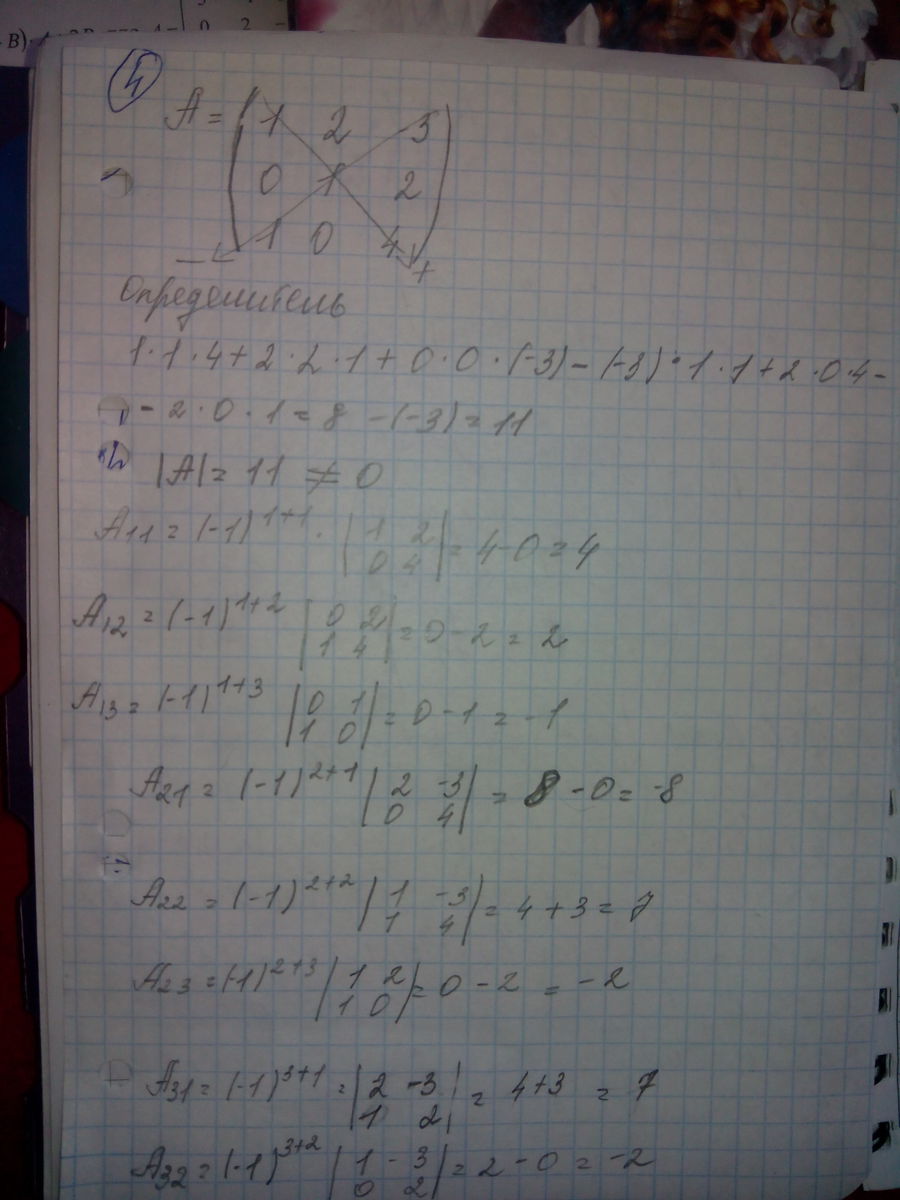 4
A = ( 1 2 3
0 1 2
1 0 4 )
— +
Определитель
1·1·4+2·2·1+0·0·(-3)-(-3)·1·1+2·0·4-
-2·0·1=8-(-3)=11
|A|=11 ≠ 0
A11 = (-1)^1+1 · |1 2| = 4-0=4
|0 4|
A12 = (-1)^1+2 |0 2| = 0-2 = 2
|1 4|
A13 = (-1)^1+3 |0 1| = 0-1 = -1
|1 0|
A21 = (-1)^2+1 |2 -3| = 8-0=-8
|0 4|
A22 = (-1)^2+2 |1 -3| = 4+3=7
|1 4|
A23 = (-1)^2+3 |1 2| = 0-2 = -2
|1 0|
A31 = (-1)^3+1 = |2 -3| = 4+3 = 7
|1 2|
A32 = (-1)^3+2 |1 -3| = 2-0=-2
|0 2|